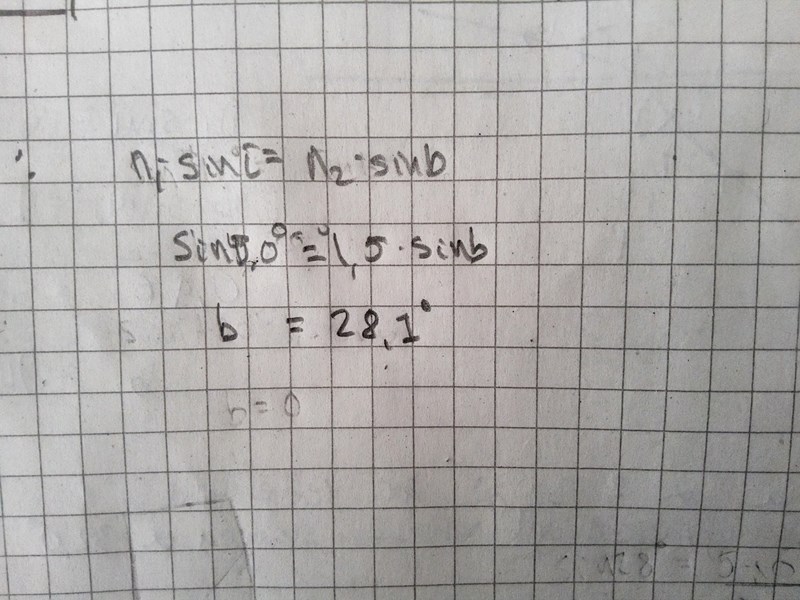 n₁·sin i = n₂·sin b
= 1,5·sin b
b = 28,1°
b = 0